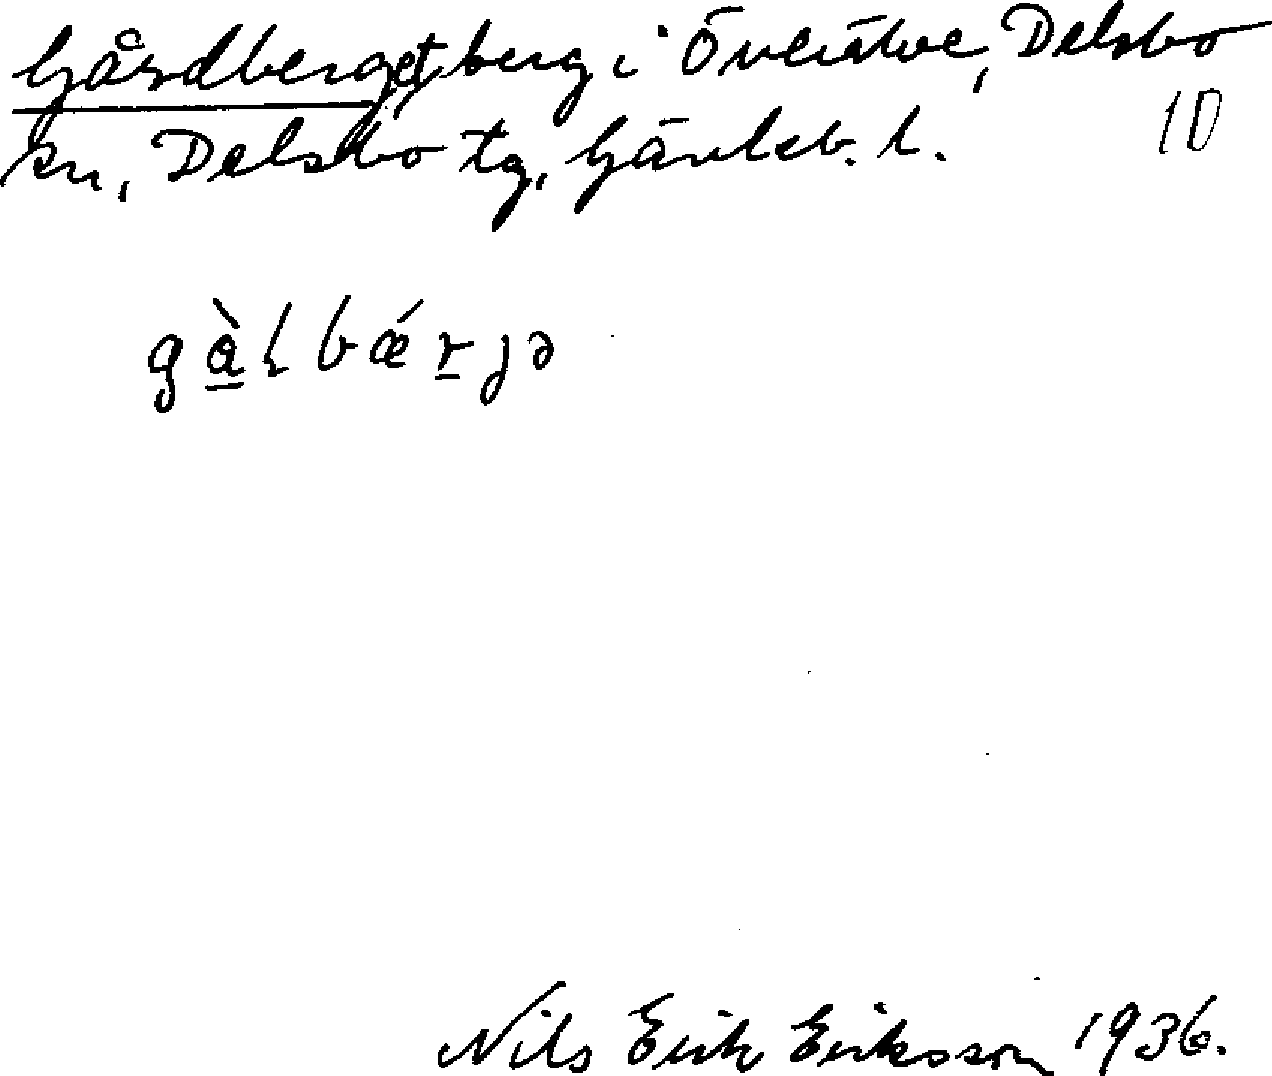 Gårdberget, berg i Överälve, Delsbo
sn, Delsbo tg, Gävleb. l.
10
gà̱ɬbǽṟjə
Nils Erik Eriksson 1936.